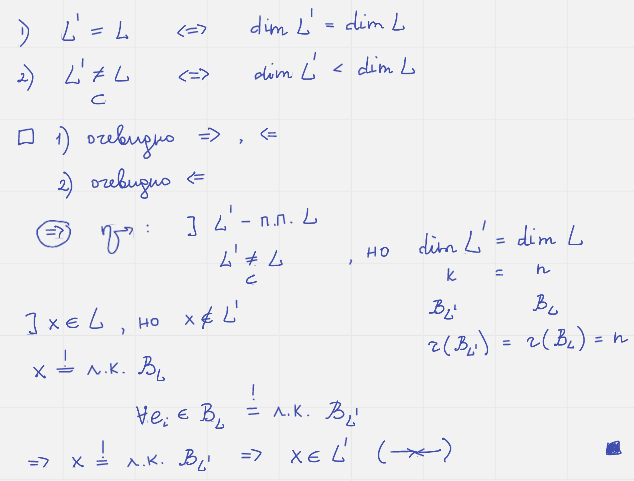 1) L' = L <=> dim L' = dim L
2) L' ≠ L <=> dim L' < dim L
⊂
□ 1) очевидно => , <=
2) очевидно <=
(=>) : ] L' – п.п. L
L' ≠ L , но dim L' = dim L
⊂ k = n
B_L' B_L
r(B_L') = r(B_L) = n
] x ∈ L , но x ∉ L'
x =! л.к. B_L
∀e_i ∈ B_L =! л.к. B_L'
=> x =! л.к. B_L' => x ∈ L' (→←) ■